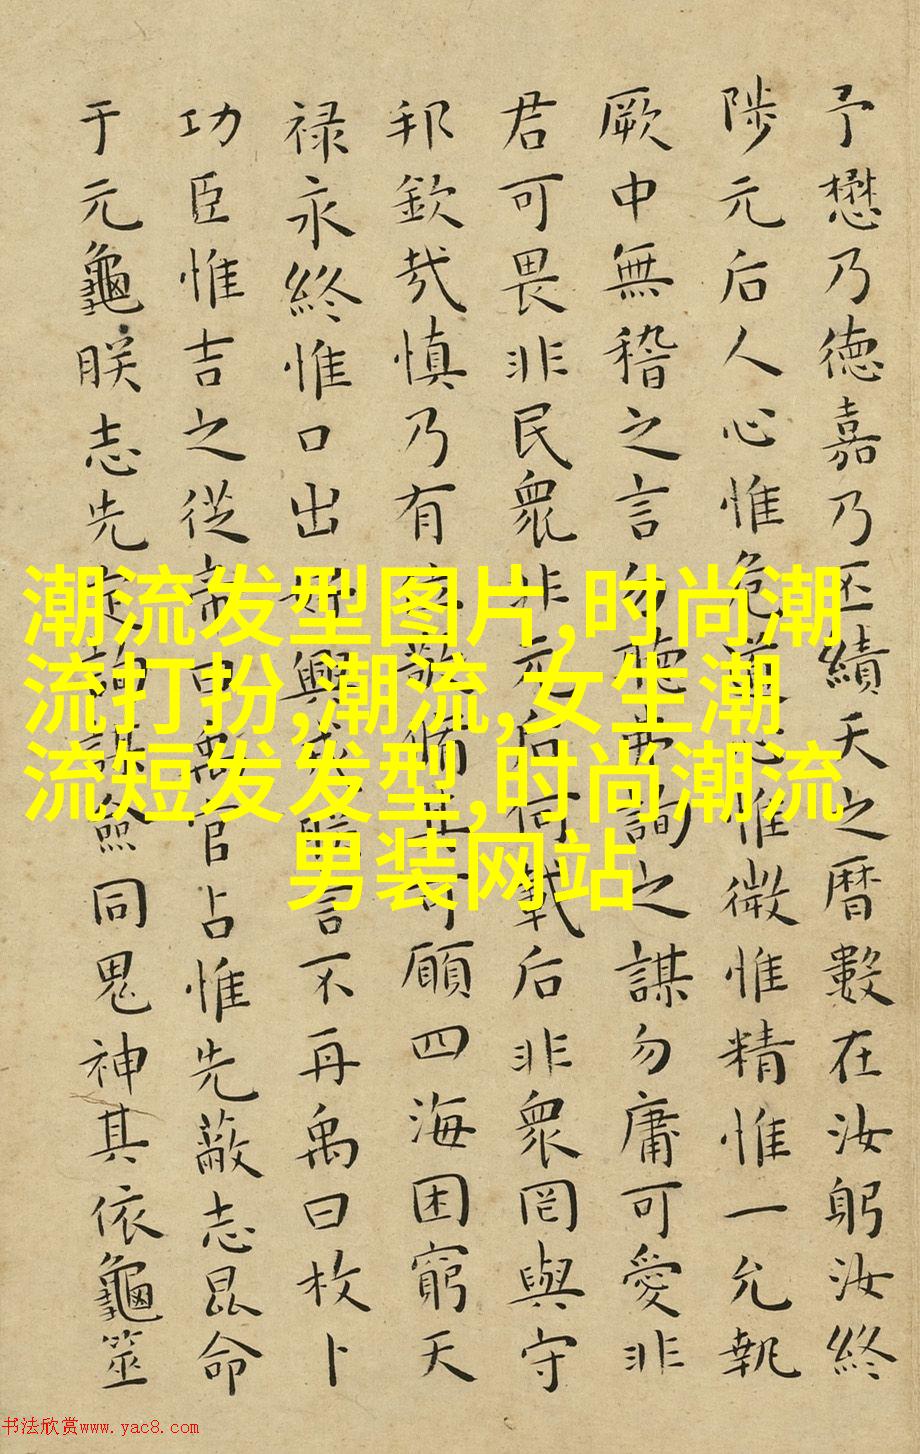 予懋乃德嘉乃丕績天之暦數在汝躬汝終
陟元后人心惟危道心惟微惟精惟一允執
厥中無稽之言勿聽弗詢之謀勿庸可愛非
君可畏非民衆非元后何戴后非衆罔與守
邦欽哉慎乃有位敬脩其可願四海困窮天
禄永終惟口出好興戎朕言不再禹曰枚卜
功臣惟吉之從帝曰禹官占惟先蔽志昆命
于元龜朕志先定詢謀僉同鬼神其依龜筮
潮流发型图片,时尚潮
流打扮,潮流,女生潮
流短发发型,时尚潮流
男装网站
书法欣赏www.yac8.com